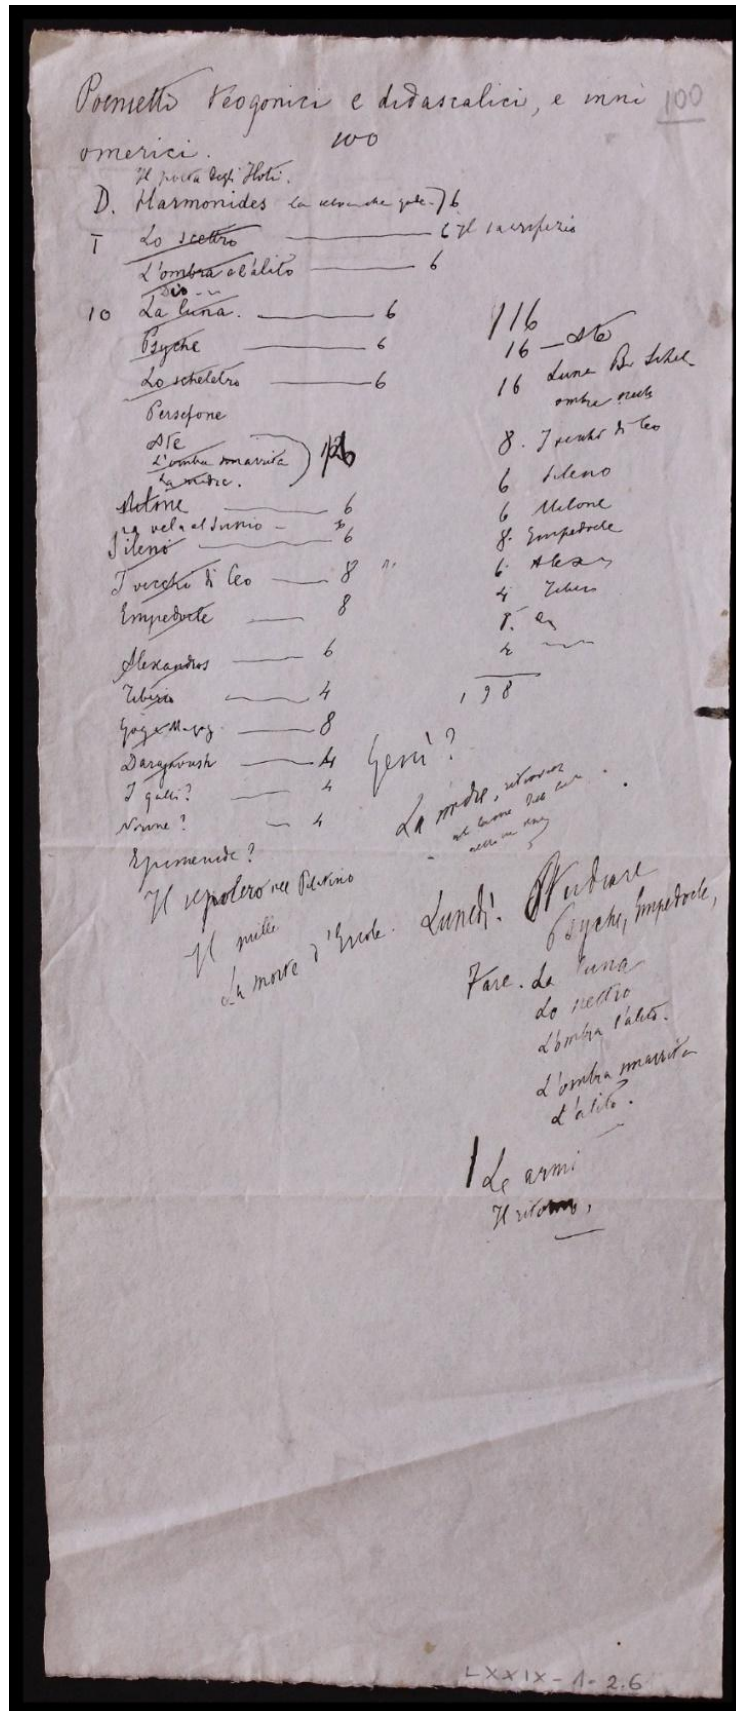 Poemetti teogonici e didascalici, e inni 100
omerici. 100
Il poeta degli Iloti.
D. Harmonides 6
T Lo scettro 6 Il sacrifizio
L'ombra e l'alito 6
10 La luna. 6
Psyche 6
Lo scheletro 6
Persefone
Ate
L'ombra smarrita
La madre.
Milone 6
La vela al Sunio
Sileno 6
I vecchi di Ceo 8
Empedocle 8
Alexandros 6
Tiberio 4
Gog e Magog 8
Daraywush 4
I galli? 4
Nerone? 4
Epimenide?
Il sepolcro nel Palatino
Il mille
La morte d'Ercole.
116
16 — Ate
16 Luna
8. I vecchi di Ceo
6 Sileno
6 Milone
8. Empedocle
6. Alex
4 Tiberio
8.
4
198
Gesù?
La madre,
Lunedì. Studiare
Psyche, Empedocle,
Fare. La luna
Lo scettro
L'ombra l'alito.
L'ombra smarrita
L'alito.
Le armi
Il ritorno,
LXXIX - 1 - 2.6